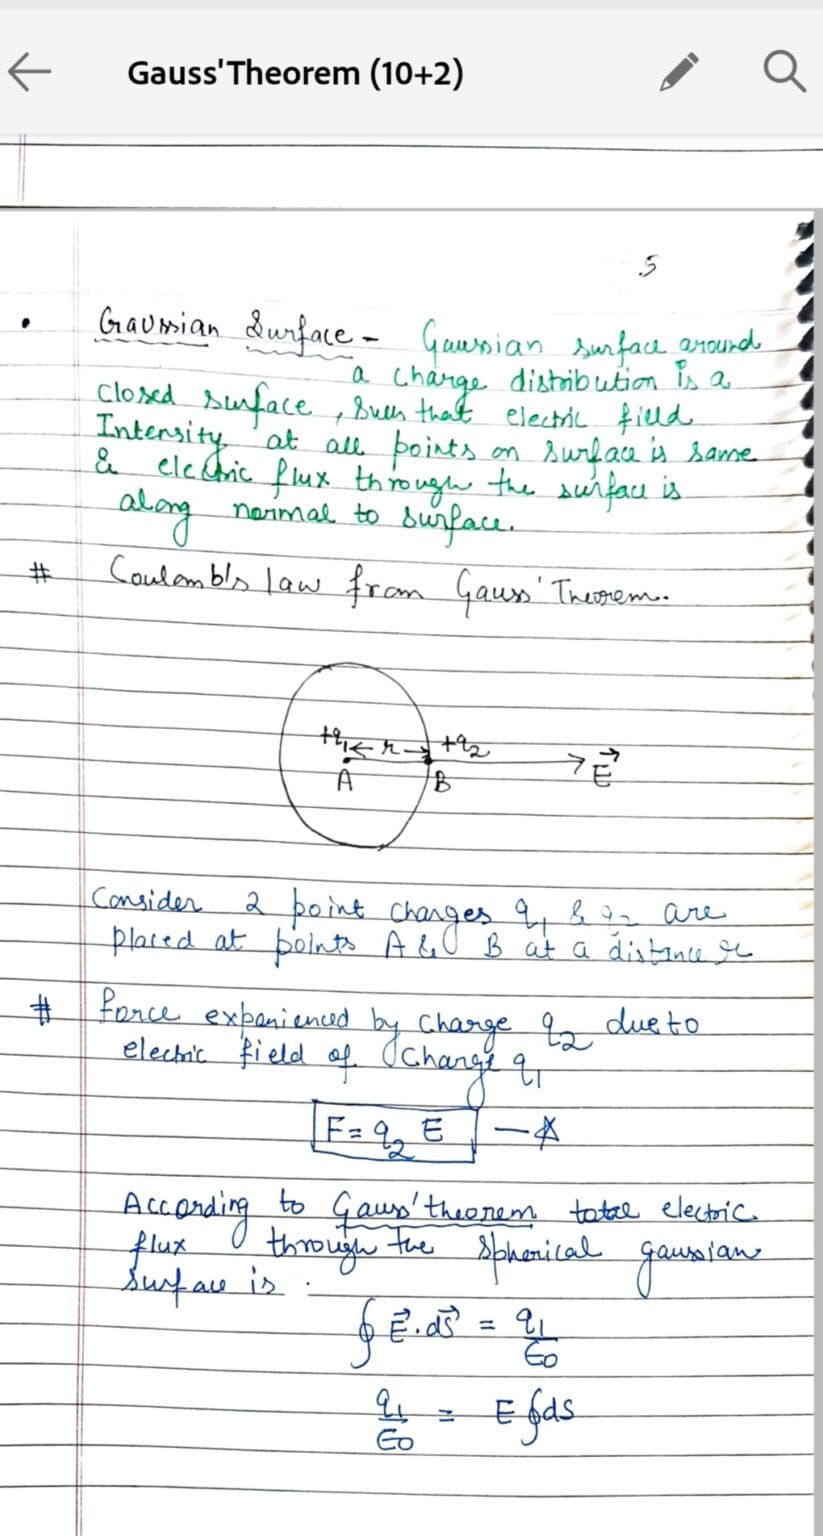 Gauss'Theorem (10+2)
5
• Gaussian Surface - Gaussian surface around
a charge distribution is a
closed surface, such that electric field
Intensity at all points on surface is same
& electric flux through the surface is
along normal to surface.
# Coulomb's law from Gauss' Theorem.
+q₁ ← r → +q₂
A B E⃗
Consider 2 point charges q₁ & q₂ are
placed at points A & B at a distance r
# Force experienced by charge q₂ due to
electric field of charge q₁
F = q₂ E — A
According to Gauss' theorem total electric
flux through the spherical gaussian
surface is :
∮ E⃗.ds⃗ = q₁/ε₀
q₁/ε₀ = E ∮ds